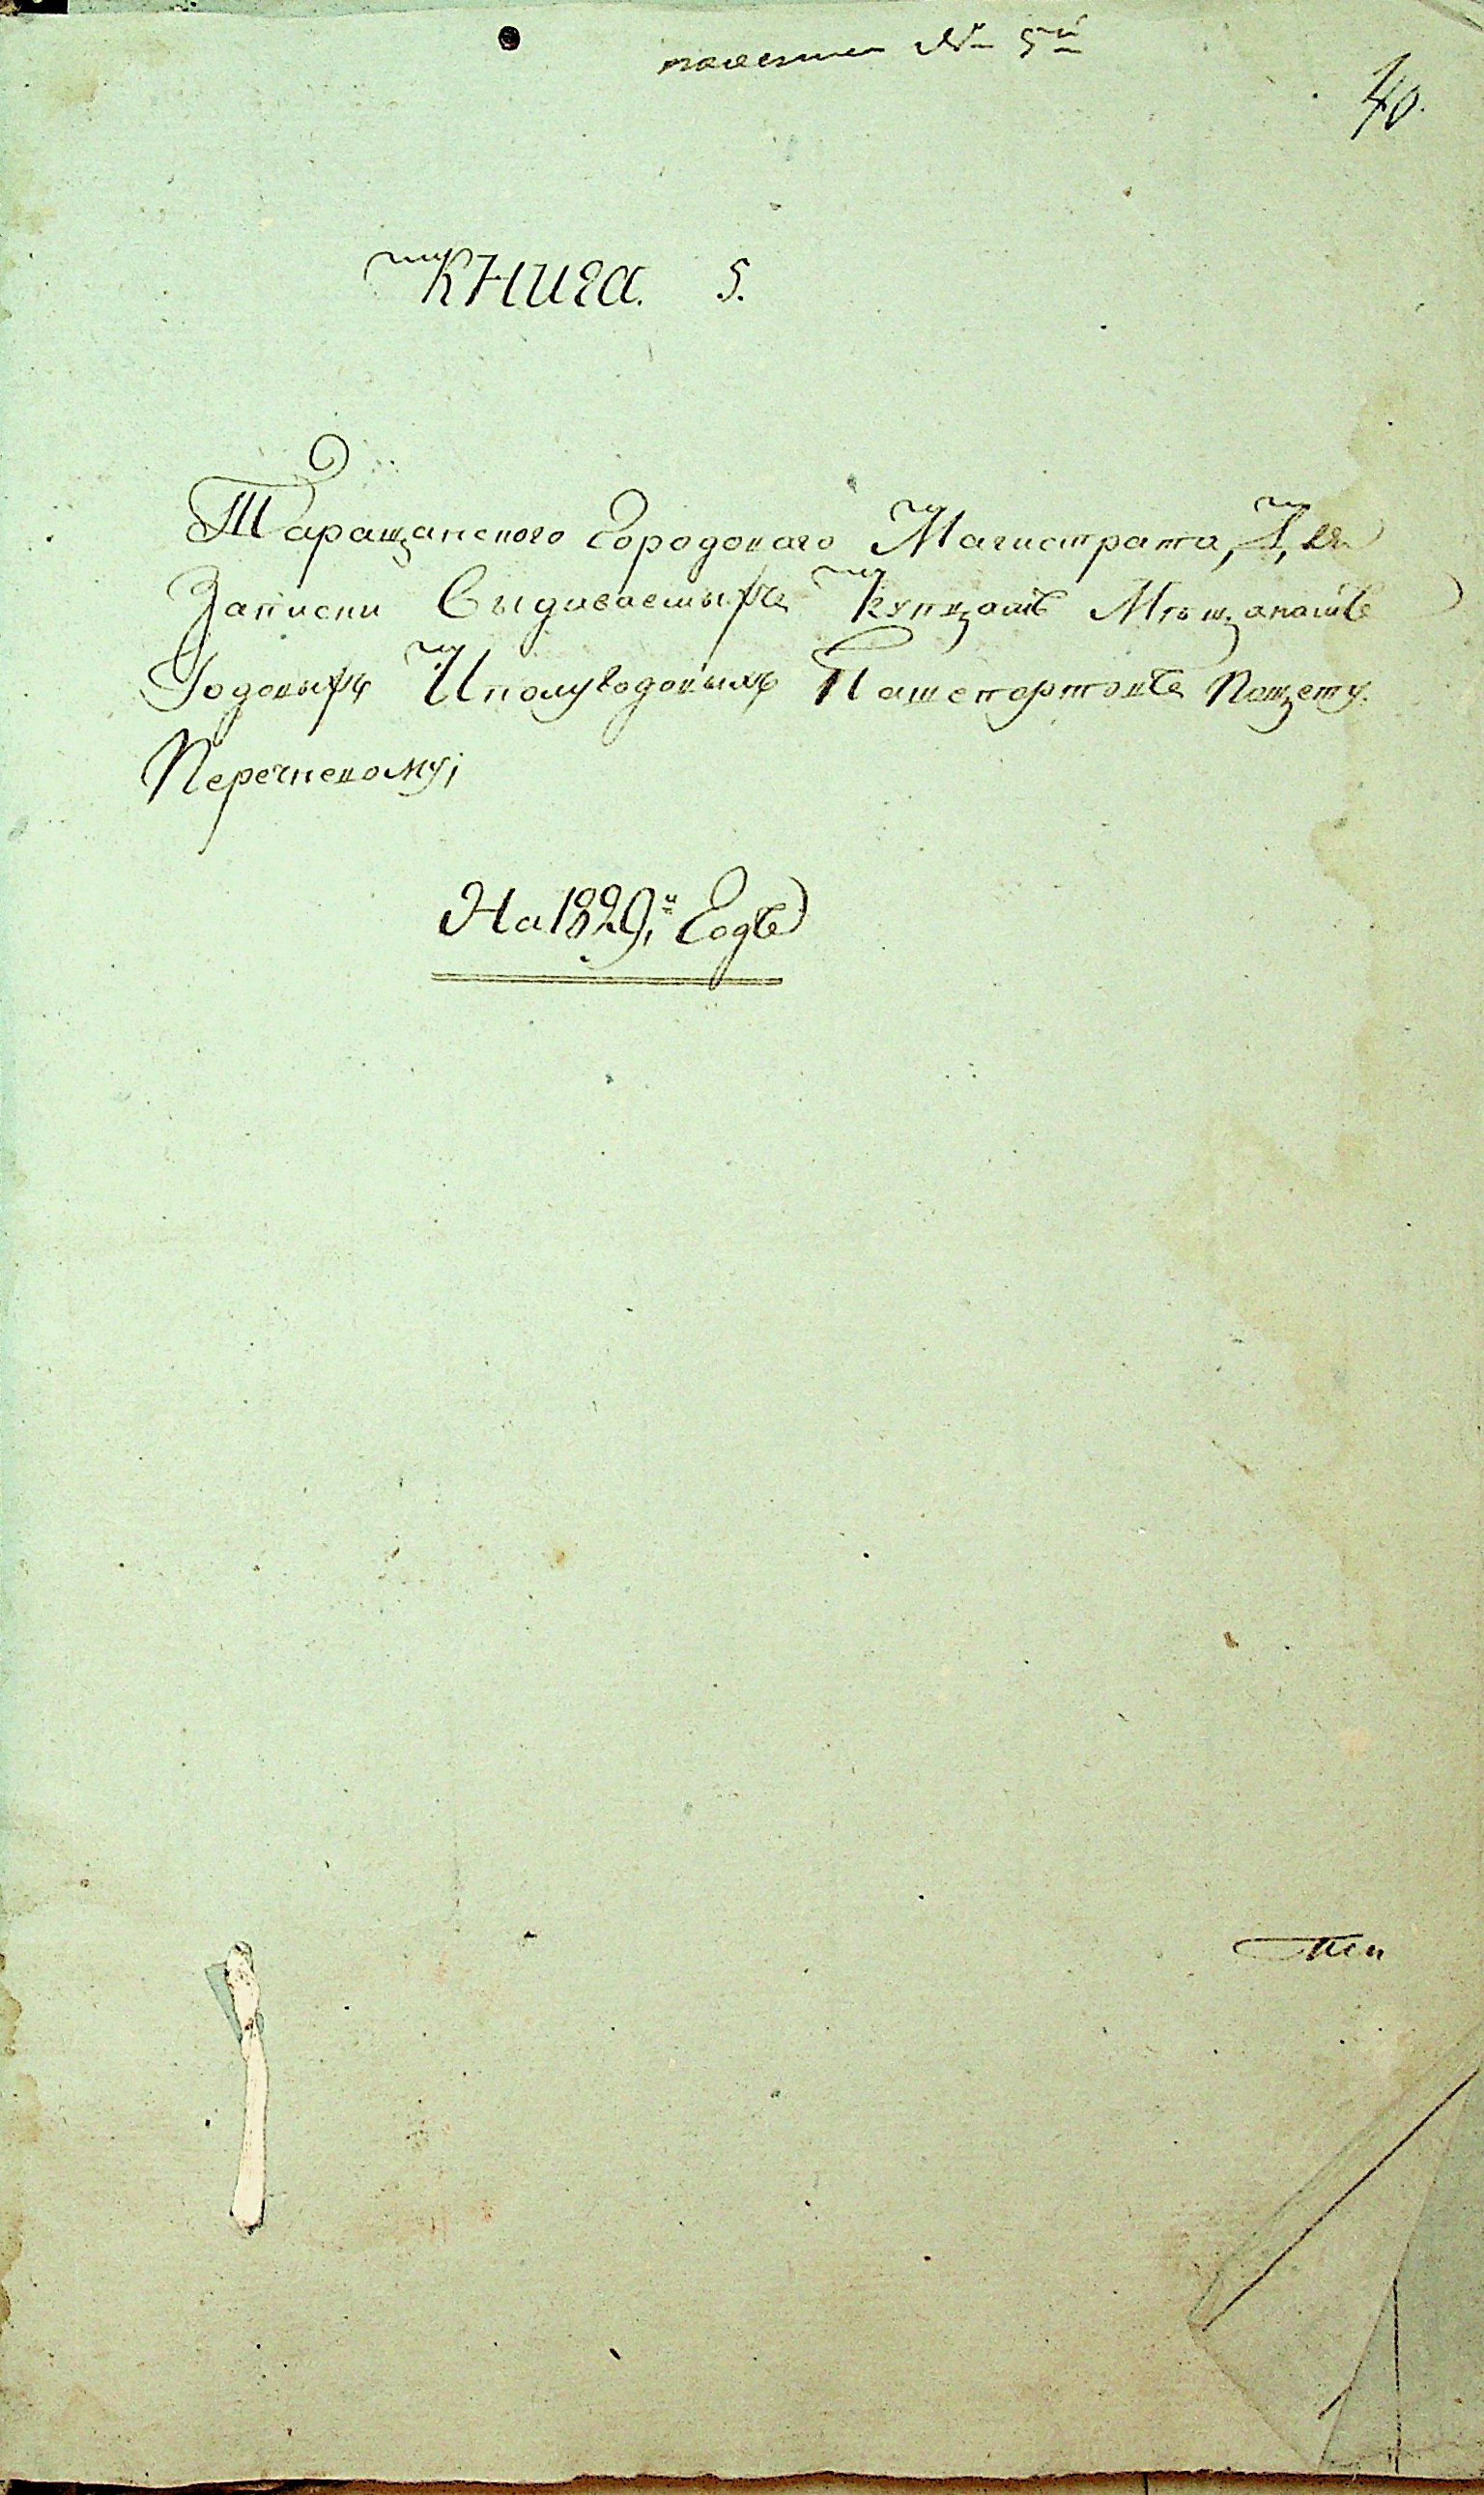 № 5й
40.
Книга. 5.
Таращанского Городоваго Магистрата, Для
Записки Выдаваемыхъ Купцамъ Мѣщанамъ
Годовыхъ Иполугодовыхъ Пашепортовъ Пощету
Перечневому;
На 1829й Годъ